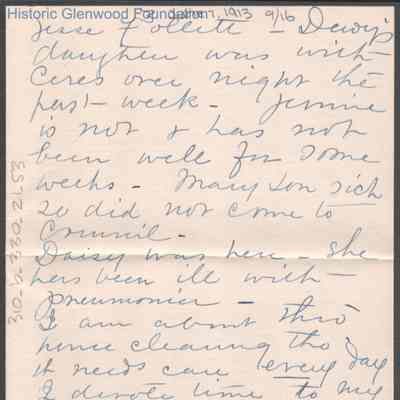 Historic Glenwood Foundation
1913 9/16
Jesse Follett - Dewy's
daughter was with
Ceres over night the
past week - Jennie
is not & has not
been well for some
weeks - Mary Lon sick
so did not come to
Council -
Daisy was here - she
has been ill with
pneumonia -
I am about thro
house cleaning tho
it needs care every day
I devote time to my
310.b2.330.21.53